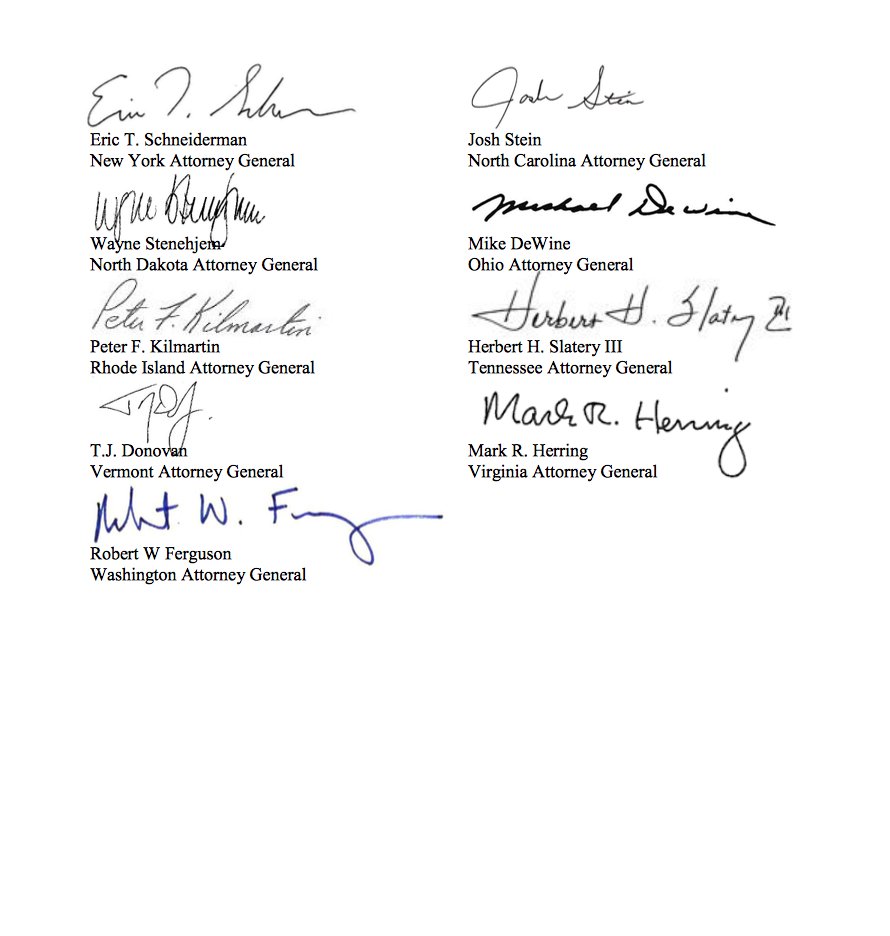 Eric T. Schneiderman
New York Attorney General
Josh Stein
Josh Stein
North Carolina Attorney General
Wayne
Wayne Stenehjem
North Dakota Attorney General
Michael DeWine
Mike DeWine
Ohio Attorney General
Peter F. Kilmartin
Peter F. Kilmartin
Rhode Island Attorney General
Herbert H. Slatery III
Herbert H. Slatery III
Tennessee Attorney General
T.J. Donovan
Vermont Attorney General
Mark R. Herring
Mark R. Herring
Virginia Attorney General
Robert W. F
Robert W Ferguson
Washington Attorney General